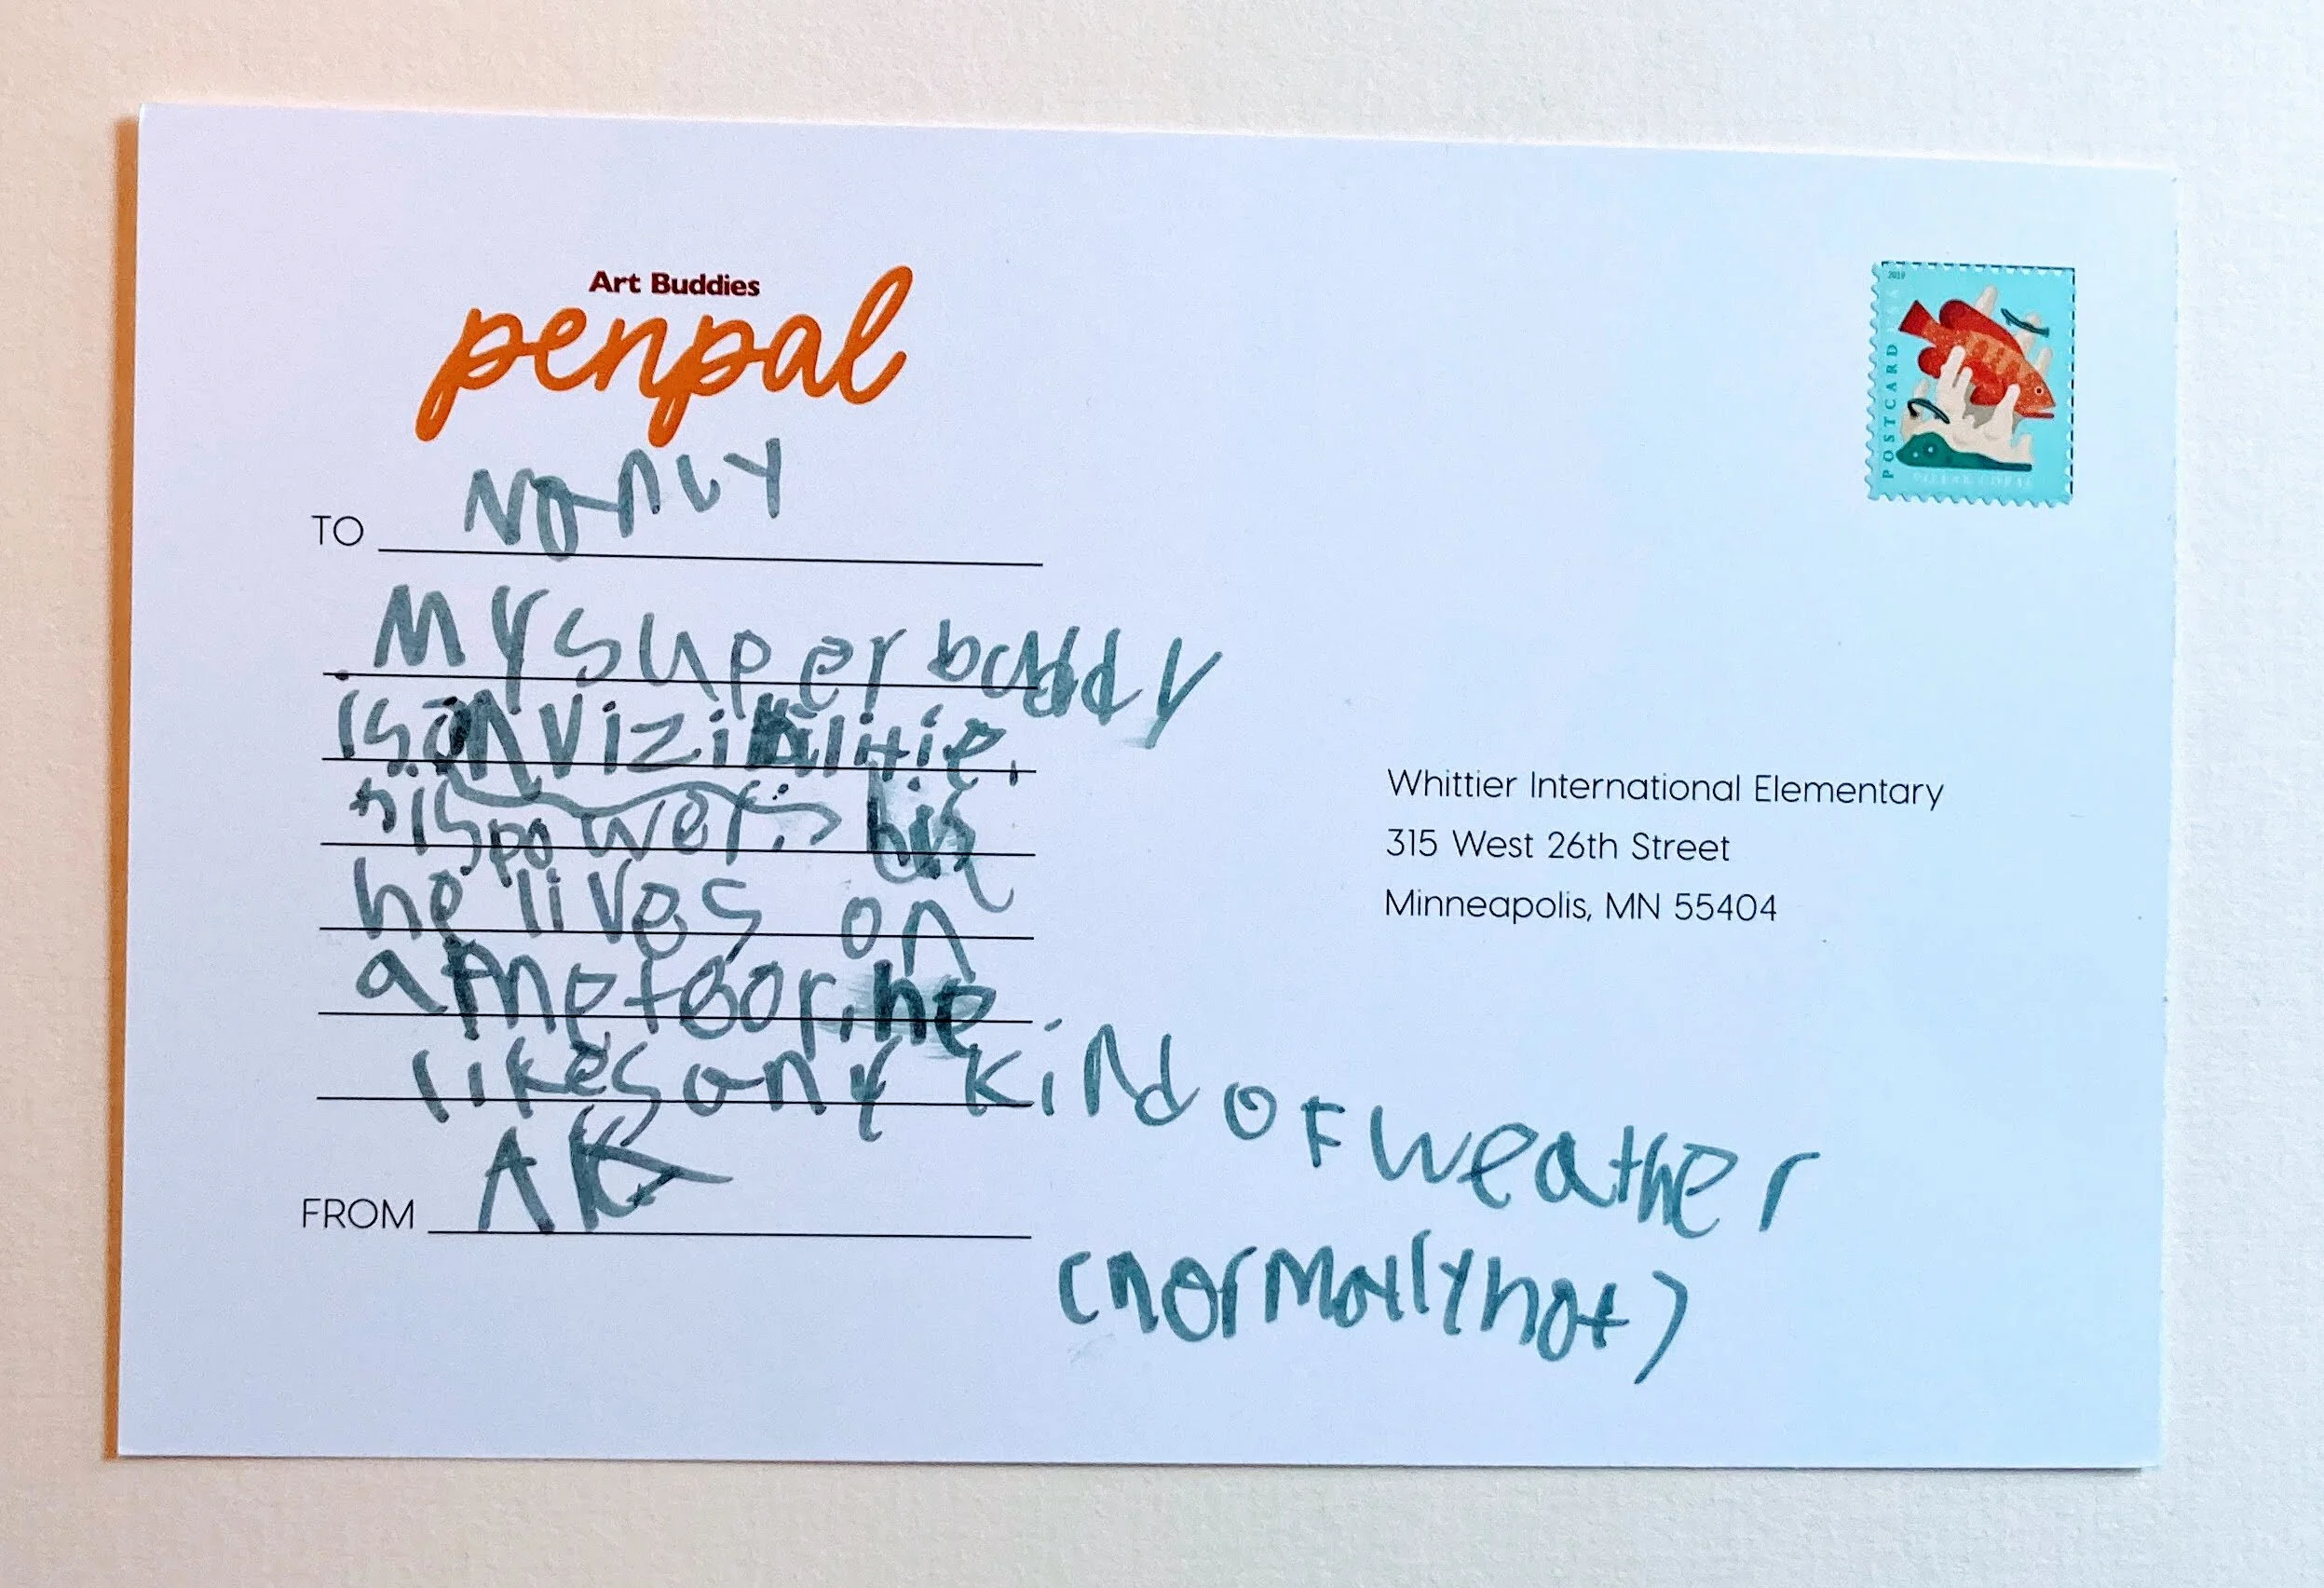 Art Buddies
penpal
TO Nancy
My super buddy
is anvizibilitie.
his power is
he lives on
a meteor. he
likes any kind of weather
(normally hot)
FROM AK
2019
POSTCARD USA
Whittier International Elementary
315 West 26th Street
Minneapolis, MN 55404